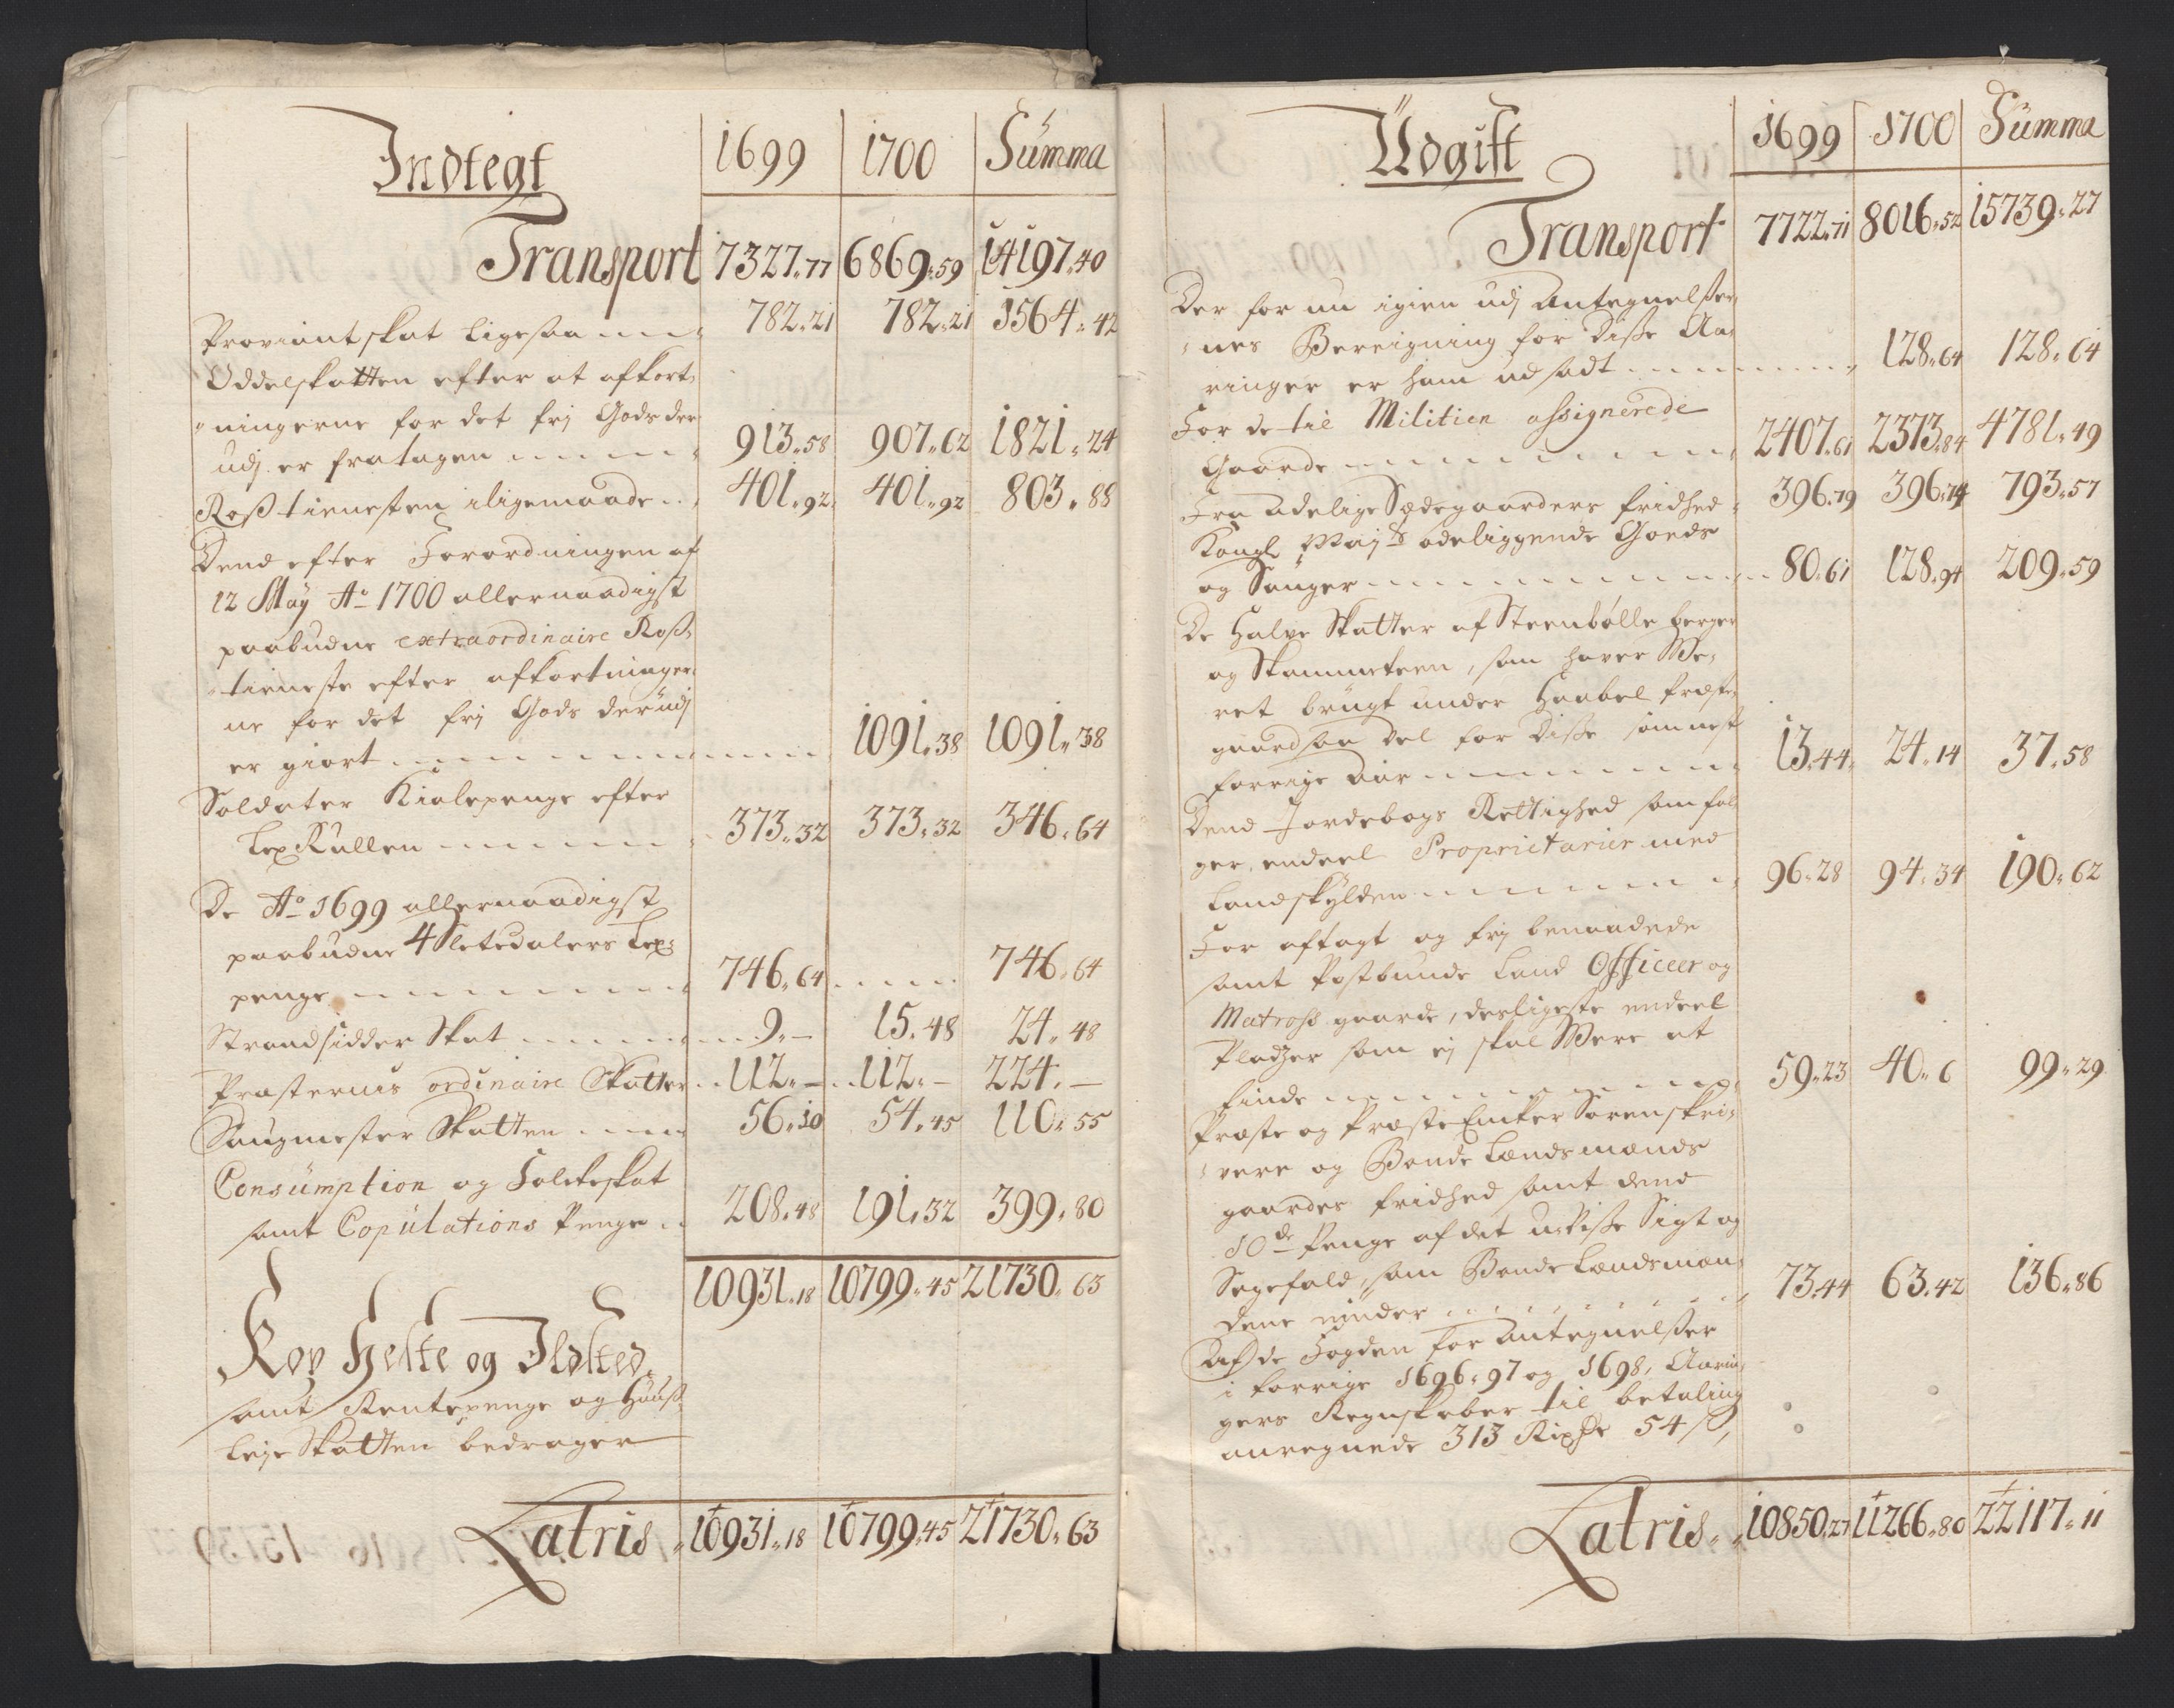 Indtegt 1699 1700 Summa
Transport 7327.77 6869.59 14197.40
Proviantskat ligesaa 782.21 782.21 1564.42
Oddelskatten efter at afkort-
ningerne for det frj Gods der
udj er fratagen 913.58 907.62 1821.24
Roßtienesten iligemaade 401.92 401.92 803.88
Dend efter Forordningen af
12 Maÿ Ao 1700 allernaadigst
paabudne extraordinaire Roß-
tieneste efter afkortninger-
ne for det frj Gods derudj
er giort 1091.38 1091.38
Soldater Kiolepenge efter
Leg Rullen 373.32 373.32 346.64
De Ao 1699 allernaadigst
paabudne 4 Sletedalers Leg-
penge 746.64 746.64
Strandsidder Skat 9.- 15.48 24.48
Præsternis ordinaire Skatter 112.- 112.- 224.-
Saugmester Skatten 56.10 54.45 110.55
Consumption og Folckeskat
samt Copulations Penge 208.48 191.32 399.80
10931.18 10799.45 21730.63
Roß Heste og Ildsted
samt Rentepenge og Huuß-
leje Skatten bedrager
Latris 10931.18 10799.45 21730.63
Udgift 1699 1700 Summa
Transport 7722.71 8016.52 15739.27
Der for nu igien udj Antegnelßer-
nes Beregning for diße Aa-
ringer er ham udsadt 128.64 128.64
For de til Militien assignerede
Gaarde 2407.61 2373.84 4781.49
Fra Adelige Sædegaarders fridhed 396.79 396.74 793.57
Kongl Mayts ødeliggende Goeds
og Sauger 80.61 128.94 209.59
De Halve Skatter af Steenbølle berger
og Skammeteen, som haver We-
ret brugt under Haabel Præste-
gaard saa vel for diße som nest
forrige Aar 13.44 24.14 37.58
Dend Jordebogs Rettighed som føl-
ger endeel Proprietarier med
Landskÿlden 96.28 94.34 190.62
For aftagt og frj benaadede
samt Postbunde land Officeer og
Matross gaarde, desligeste endeel
Pladzer som ej skal Were at
finde 59.23 40.6 99.29
Præste og Præste Encker Sorenskri-
vere og Bonde Lændsmænds
gaardes fridhed samt dend
10de Penge af det uviße Sigt og
Sagefald, som Bonde Lændsmæn-
dene nÿder 73.44 63.42 136.86
Af de Fogden for Antegnelßer
i forrige 1696. 97 og 1698. Aarin-
gers Regnskaber til betaling
anregnede 313 Rixdr 54 ß,
Latris 10850.27 11266.80 22117.11